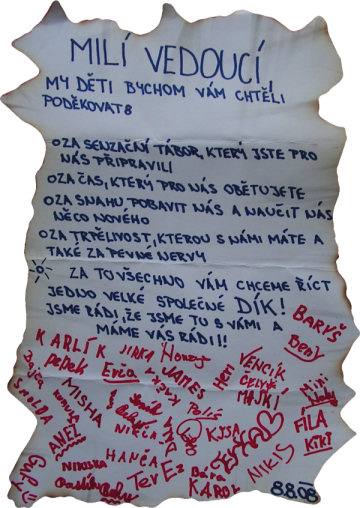 MILÍ VEDOUCÍ,
MY DĚTI BYCHOM VÁM CHTĚLI
PODĚKOVAT:
ZA SENZAČNÍ TÁBOR, KTERÝ JSTE PRO
NÁS PŘIPRAVILI
ZA ČAS, KTERÝ PRO NÁS OBĚTUJETE
ZA SNAHU POBAVIT NÁS A NAUČIT NÁS
NĚCO NOVÉHO
ZA TRPĚLIVOST, KTEROU S NÁMI MÁTE A
TAKÉ ZA PEVNÉ NERVY
ZA TO VŠECHNO VÁM CHCEME ŘÍCT
JEDNO VELKÉ SPOLEČNÉ DÍK!
JSME RÁDI, ŽE JSME TU S VÁMI A
MÁME VÁS RÁDI!!
BARYŠ
KARLÍK
JIRKA
Honzy
VENCIK
Beny
Eria
JAMES
CELÝ
MAJKÍ
MISHA
SMOLDA
FÍLA
KIKI
KJSA
ANEL
NIKČA
HANČA
NIKISKA
NIKIS
Bára
TerEz
KAROL
8.8.08